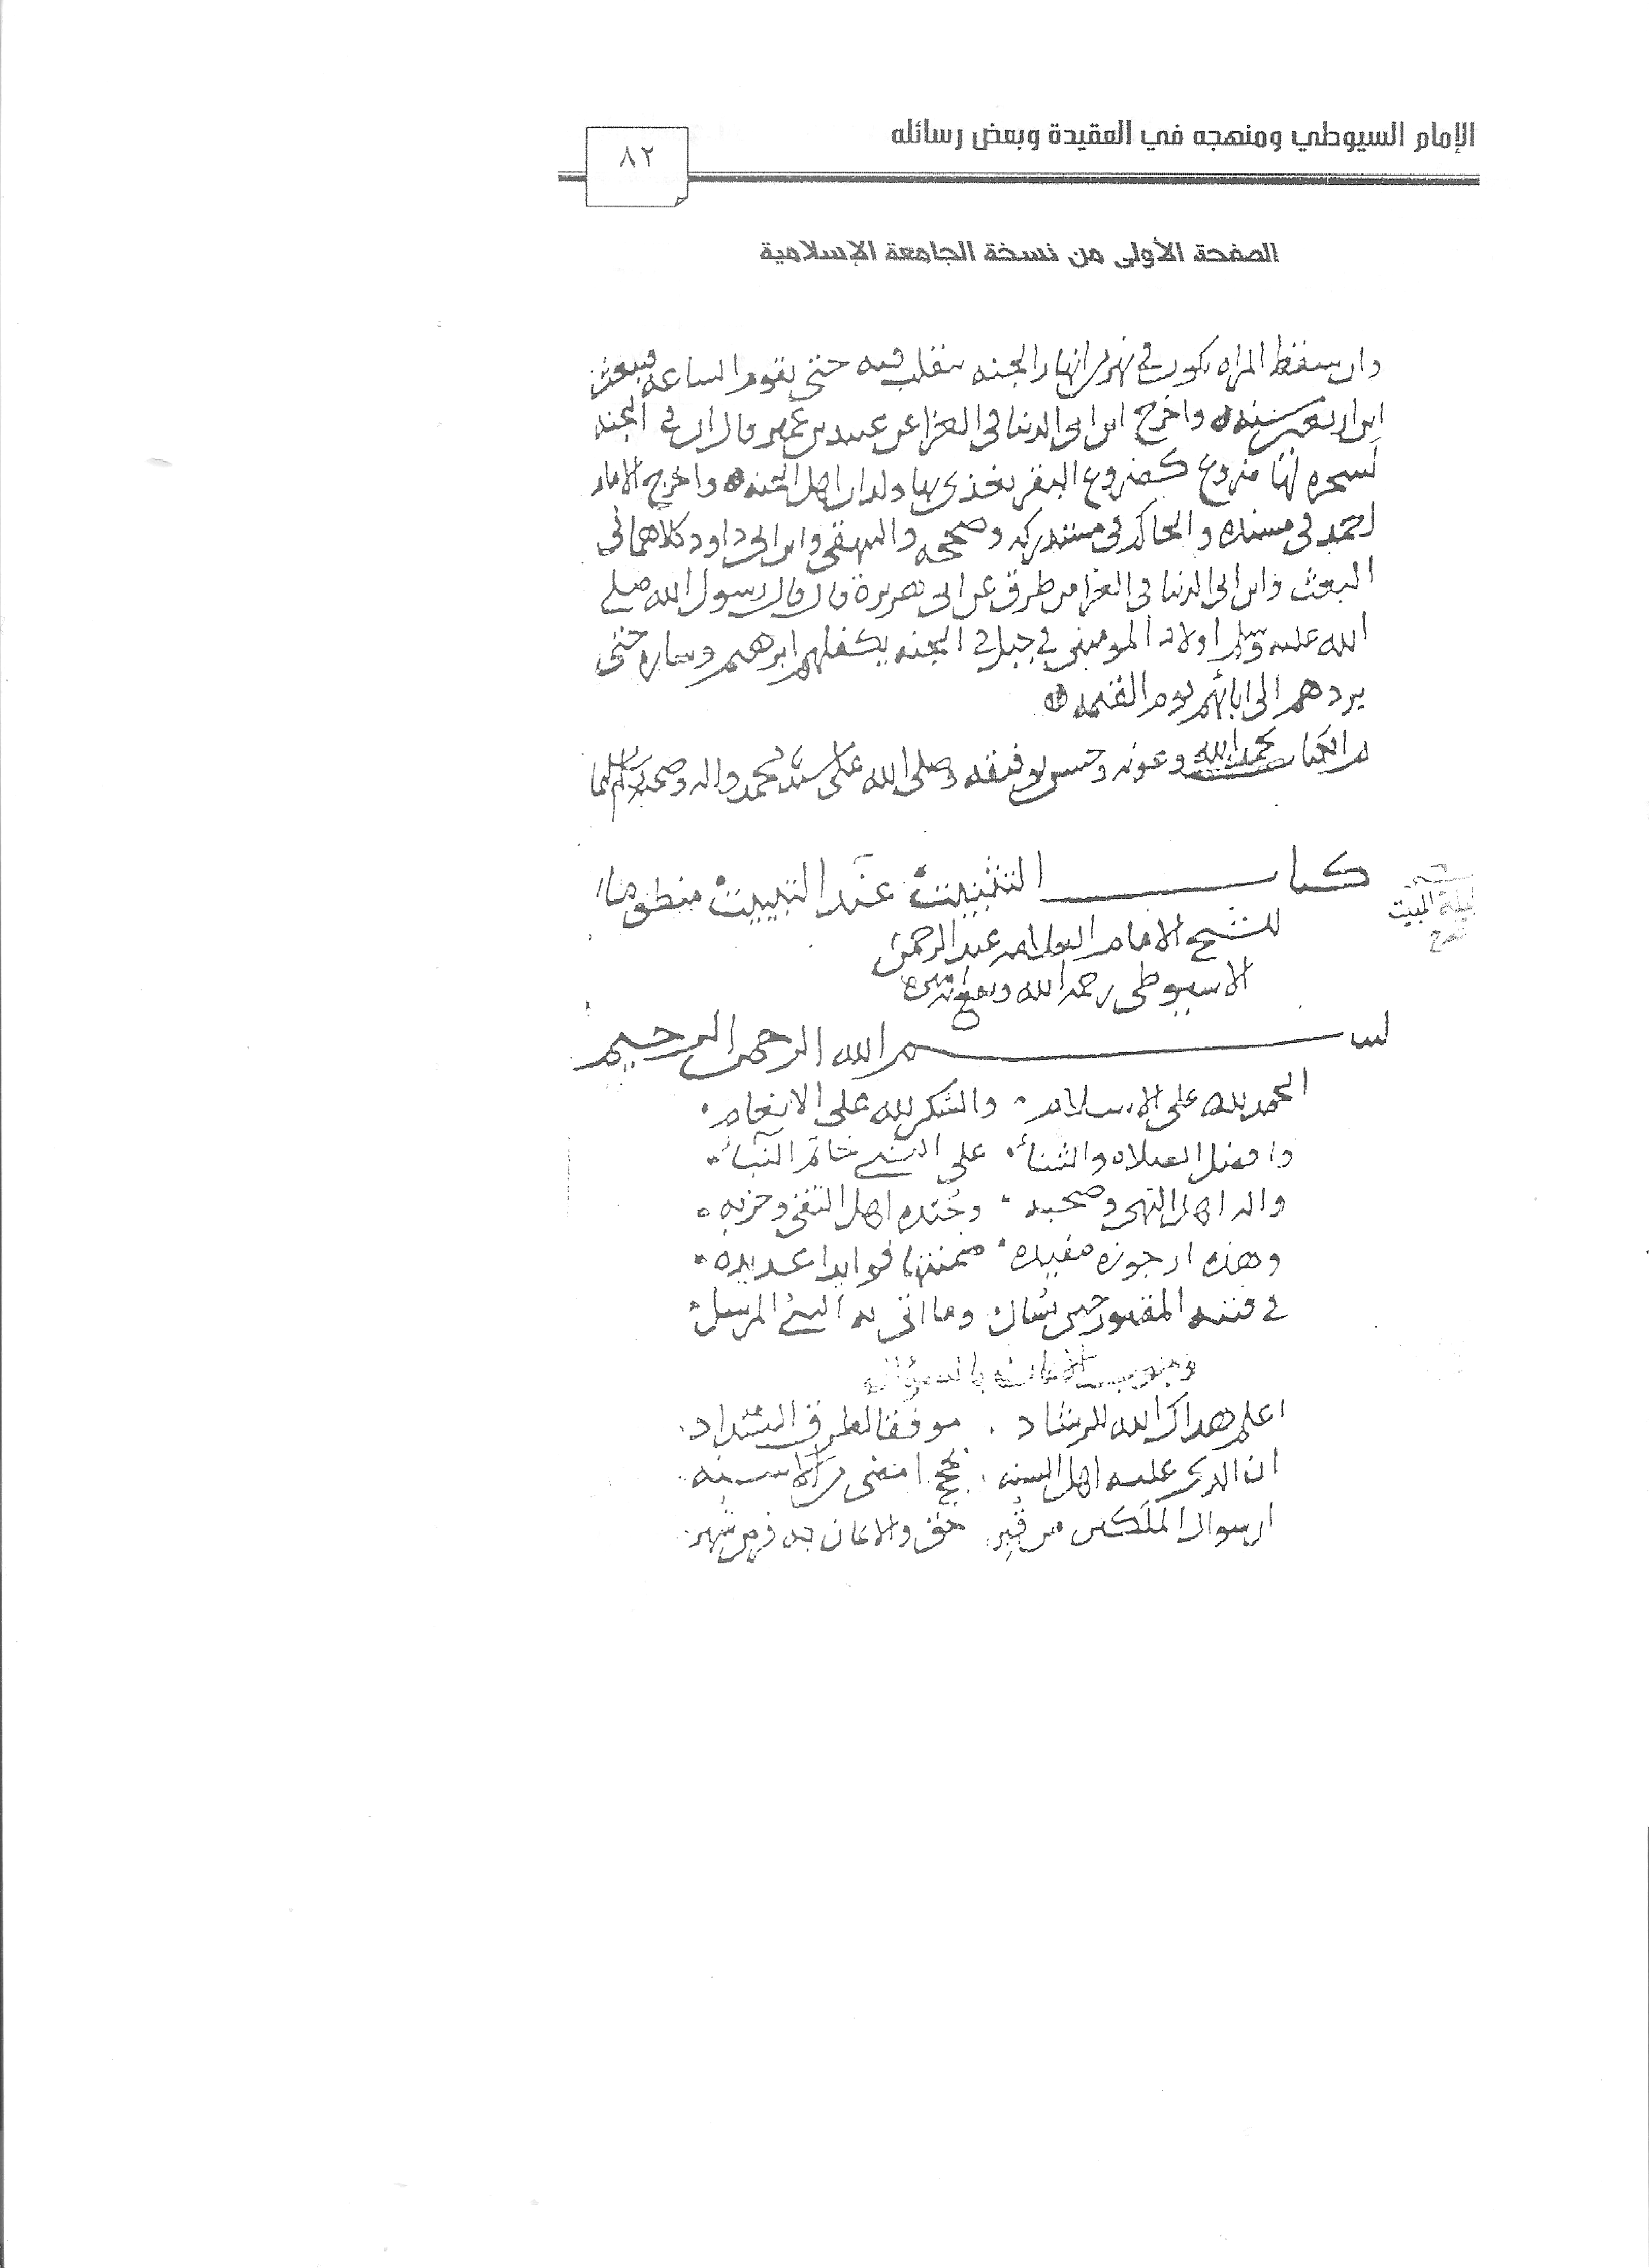 الإمام السيوطي ومنهجه في العقيدة وبعض رسائله
٨٢
الصفحة الأولى من نسخة الجامعة الإسلامية
وان سقط المراه يكون في نهر من انهار الجنه يتقلب فيه حتى يقوم الساعه فيبعث
ابن اربعين سنه واخرج ابن ابي الدنيا في العزا عن عبيد بن عمير قال ان في الجنه
لشجره لها ضروع كضروع البقر يغذى بها ولدان اهل الجنه واخرج الامام
احمد في مسنده والحاكم في مستدركه وصححه والبيهقي وابن ابي داود كلاهما في
البعث وابن ابي الدنيا في العزا من طرق عن ابي هريرة قال قال رسول الله صلى
الله عليه وسلم اولاد المومنين في جبل في الجنه يكفلهم ابرهيم وساره حتى
يردهم الى ابائهم يوم القيمه
تم الكتاب بحمد الله وعونه وحسن توفيقه وصلى الله على سيدنا محمد واله وصحبه وسلم
كتاب التثبيت عند التبييت منظوما
للشيخ الامام العلامه عبد الرحمن
الاسيوطي رحمه الله
ليلة المبيت
بسم الله الرحمن الرحيم
الحمد لله على الاسلام والشكر لله على الانعام
وافضل الصلاه والثناء على النبي خاتم النباء
واله اهل النهى وصحبه وجنده اهل التقى وحزبه
وهذه ارجوزه مفيده ضمنتها فوايدا عديده
في فتنه المقبور حين يسال وما اتى به النبي المرسل
وجوب الايمان بالسؤال
اعلم هداك الله للرشاد موفقا لطرق السداد
ان الذي عليه اهل السنه بحجج امضى من الاسنه
ان سوال الملكين من قبر حق والايمان به فرض شهر